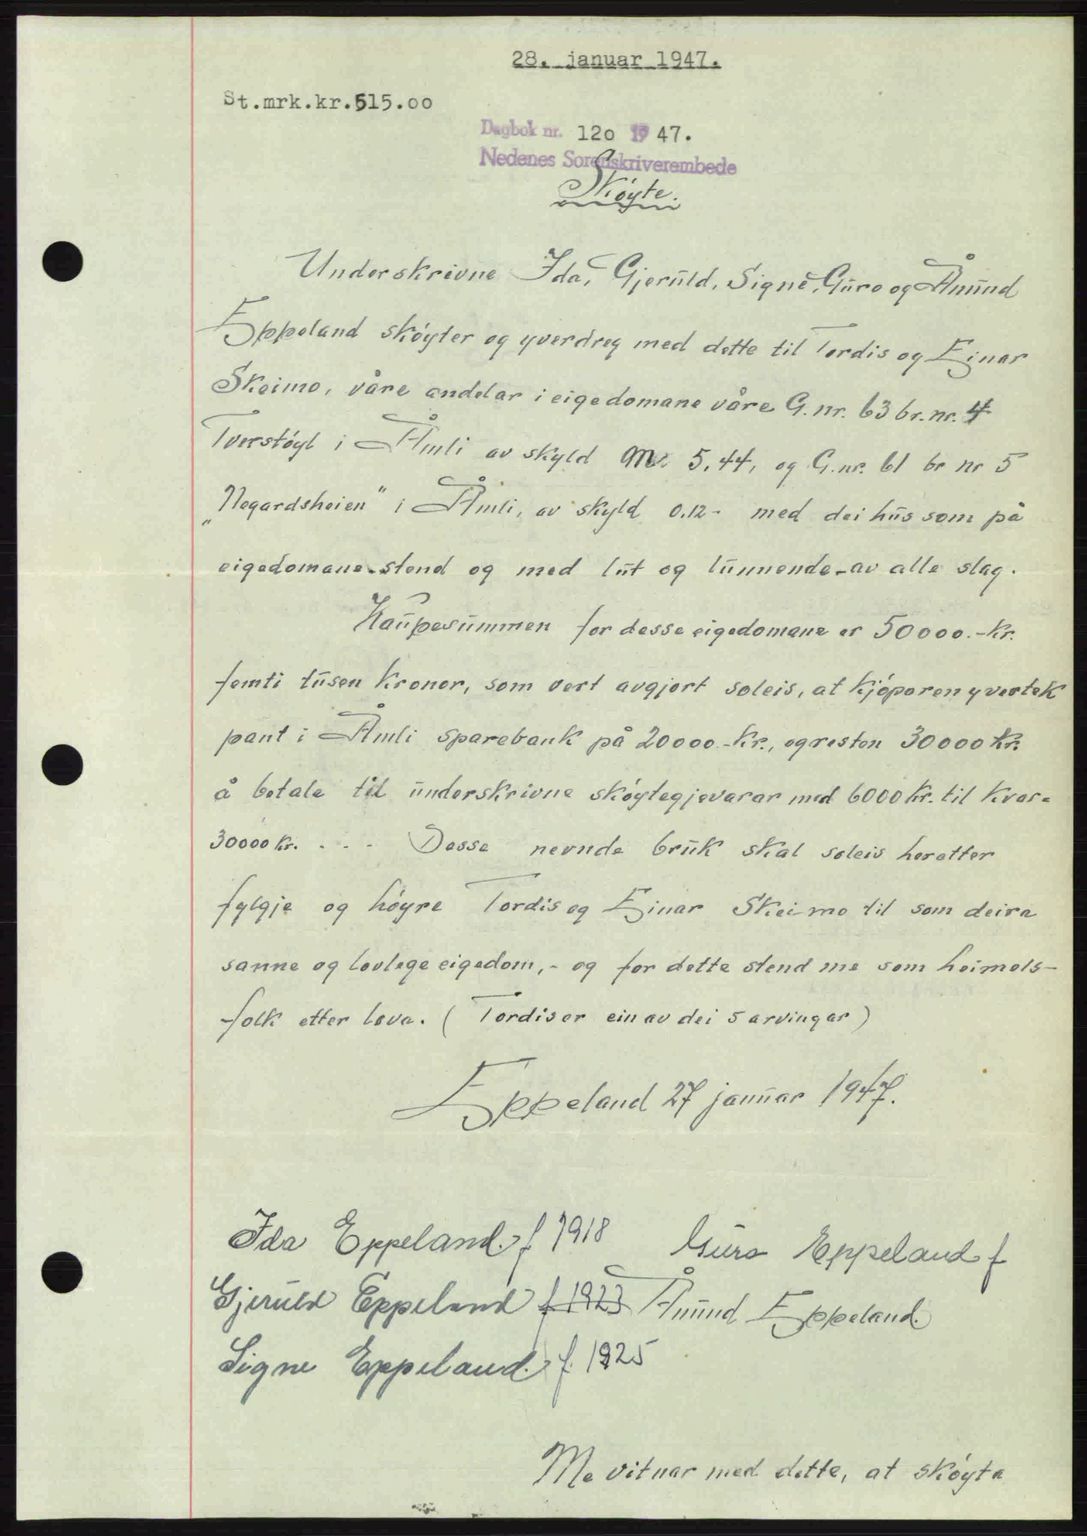 28. januar 1947.
St.mrk.kr.515.oo
Dagbok nr. 12o 1947.
Nedenes Sorenskriverembede
Skøyte.
Underskrivne Ida, Gjeruld, Signe, Guro og Åmund
Eppeland skøyter og yverdreg med dette til Tordis og Einar
Skeimo, våre andelar i eigedomane våre G.nr. 63 br.nr. 4
Tverstøyl i Åmli av skyld M. 5,44, og G.nr. 61 br nr 5
"Negardsheien" i Åmli, av skyld 0.12- med dei hus som på
eigedomane stend og med lut og lunnende av alle slag.
Kaupesummen for desse eigedomane er 50000.-Kr.
femti tusen Kroner, som vert avgjort soleis, at Kjøparen yvertek
pant i Åmli sparebank på 20000.-Kr., og resten 30000 Kr.
å betale til underskrivne skøytegjevarar med 6000 Kr. til Kvar=
30000 Kr. . - - Desse nevnde bruk skal soleis heretter
fylgje og høyre Tordis og Einar Skeimo til som deira
sanne og lovlege eigedom,- og for dette stend me som heimels-
folk etter lova. ( Tordis er ein av dei 5 arvingar )
Eppeland 27 januar 1947.
Ida Eppeland. f 1918 Guro Eppeland f
Gjeruld Eppeland f 1923 Åmund Eppeland.
Signe Eppeland. f. 1925
Me vitnar med dette, at skøyta